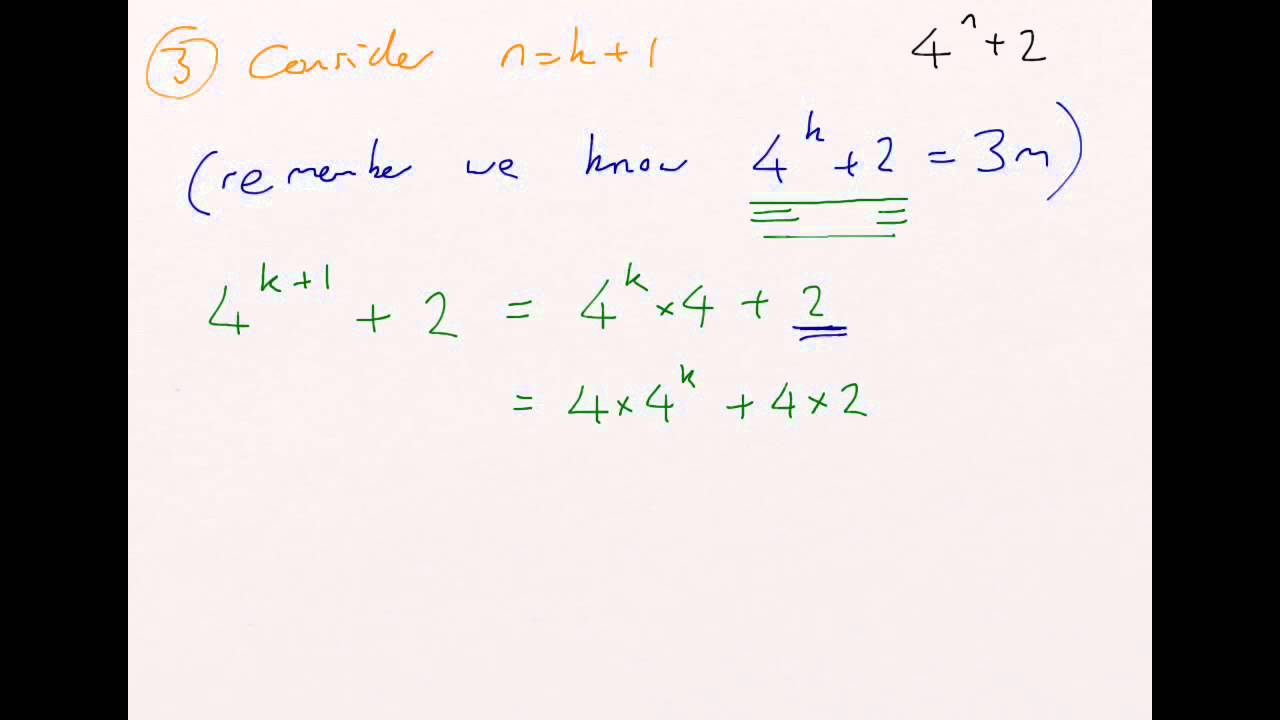 ③ Consider n=k+1 4ⁿ+2
(remember we know 4ᵏ+2 = 3m)
4ᵏ⁺¹ + 2 = 4ᵏ×4 + 2
= 4×4ᵏ + 4×2